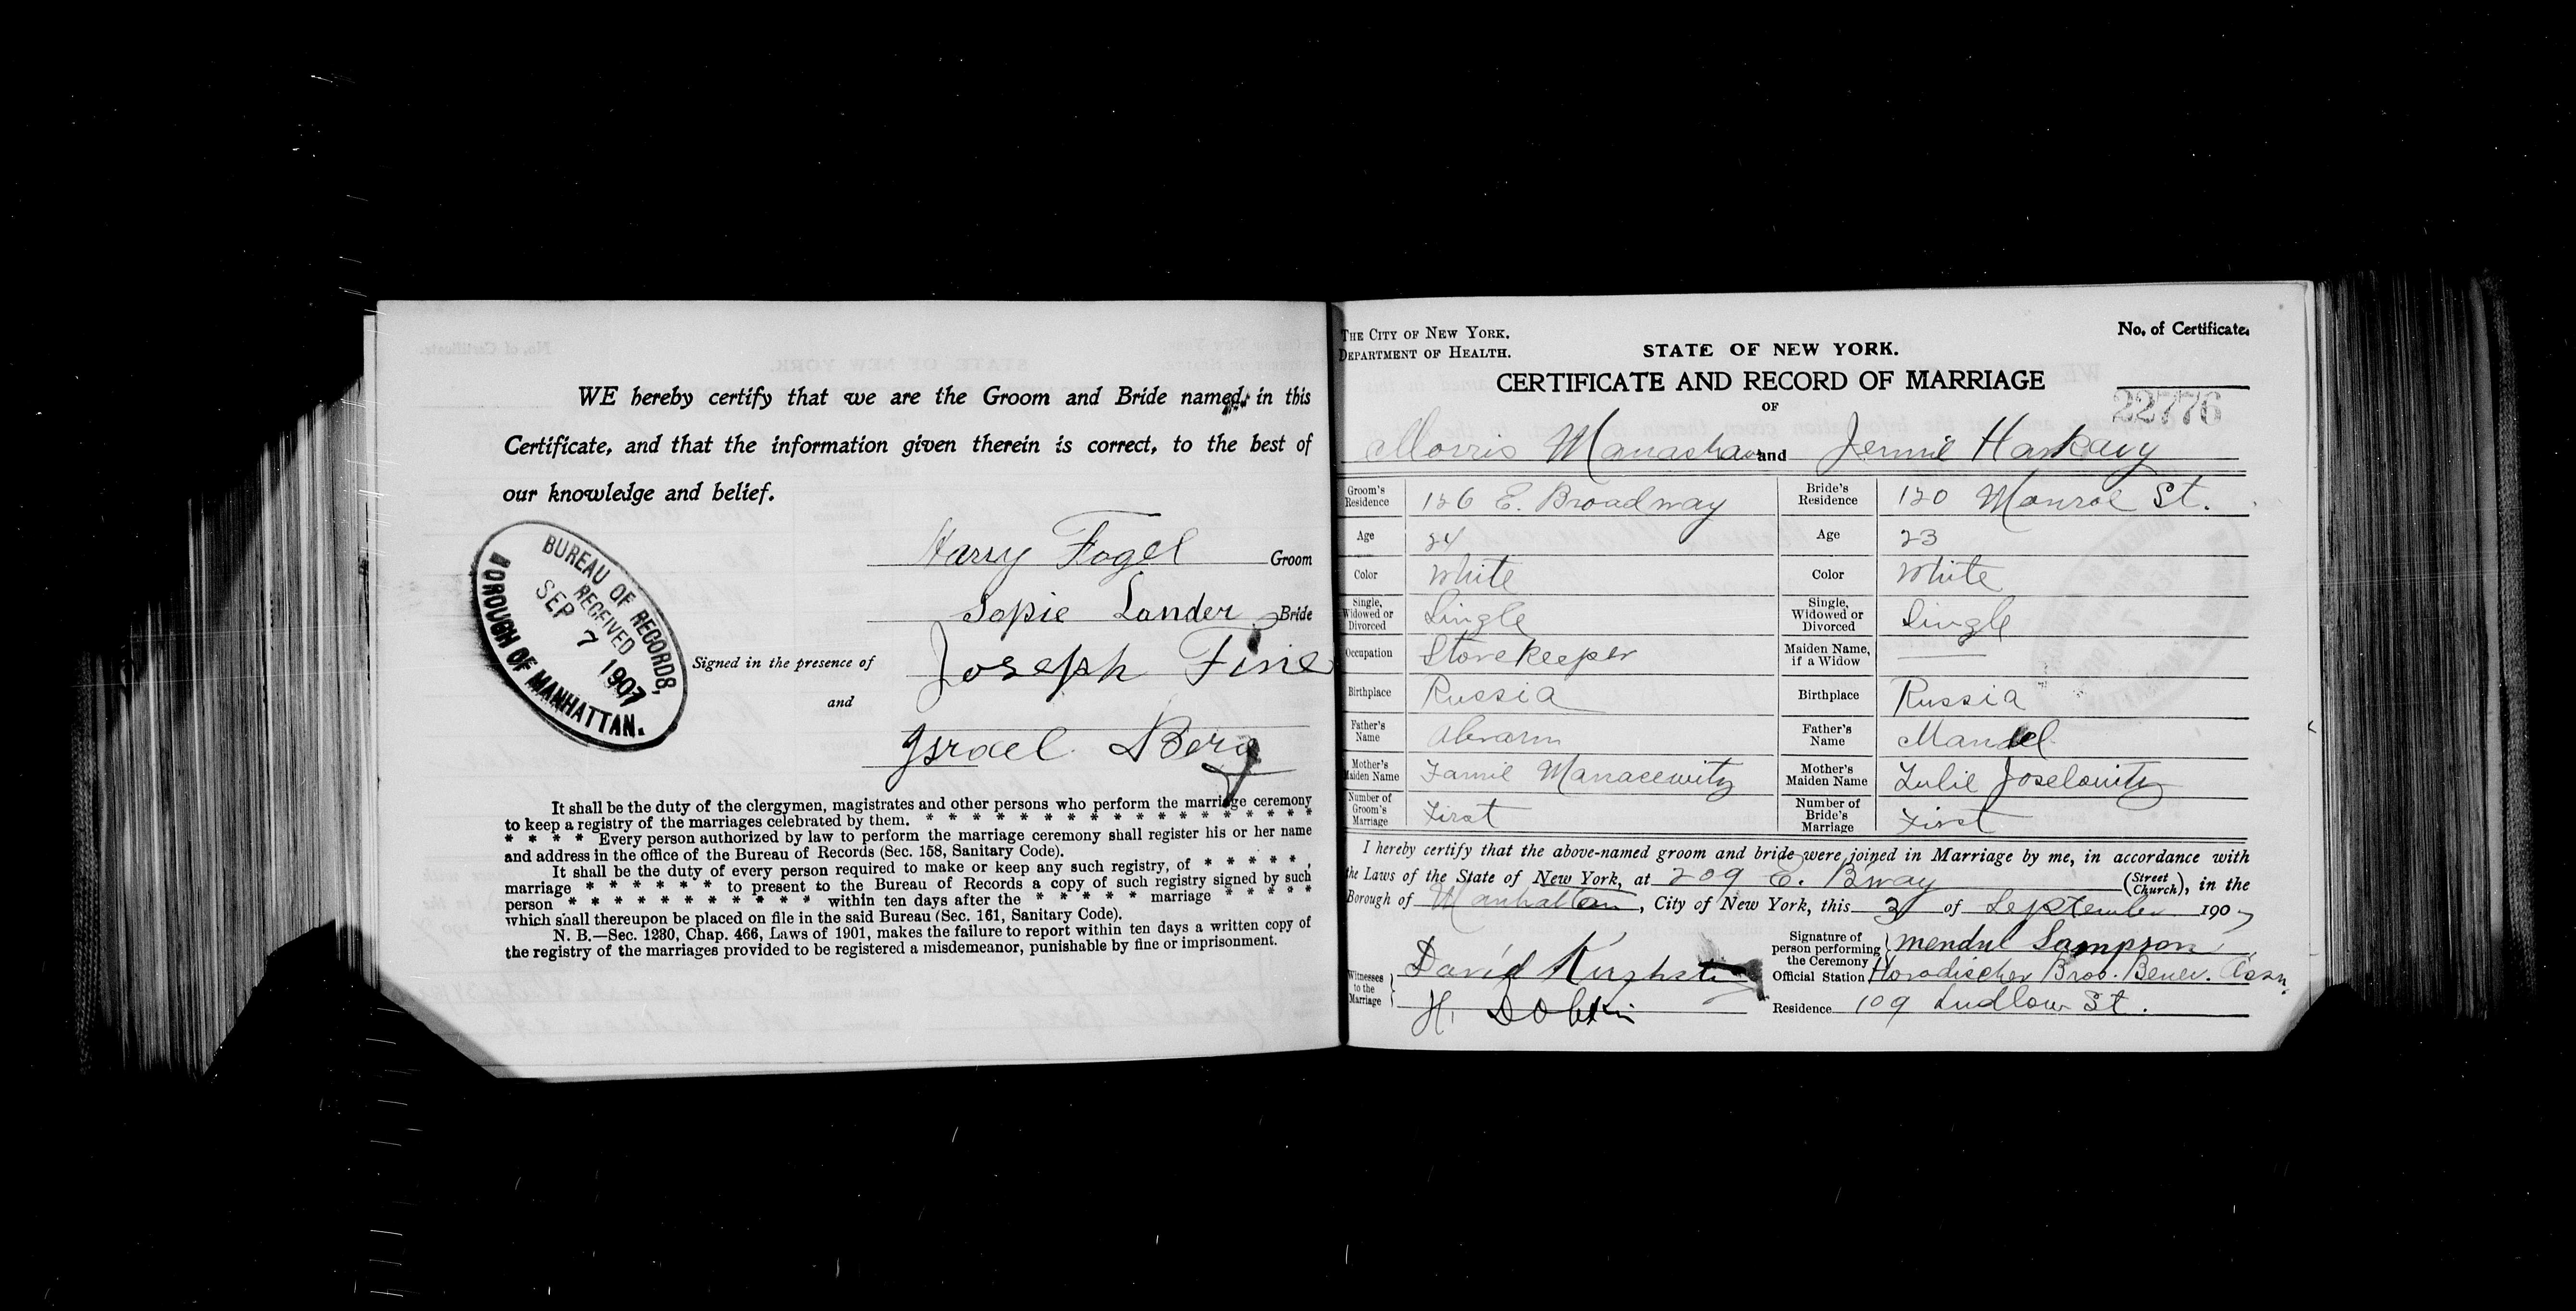 WE hereby certify that we are the Groom and Bride named in this
Certificate, and that the information given therein is correct, to the best of
our knowledge and belief.
Harry Fogel Groom
Sopie Lander Bride
Signed in the presence of Joseph Fine
and
Israel Berg
BUREAU OF RECORDS,
RECEIVED
SEP 7 1907
BOROUGH OF MANHATTAN.
It shall be the duty of the clergymen, magistrates and other persons who perform the marriage ceremony
to keep a registry of the marriages celebrated by them. * * * * * * * * * * * * * * * * *
* * * * Every person authorized by law to perform the marriage ceremony shall register his or her name
and address in the office of the Bureau of Records (Sec. 158, Sanitary Code).
It shall be the duty of every person required to make or keep any such registry, of * * * * * ,
marriage * * * * * * to present to the Bureau of Records a copy of such registry signed by such
person * * * * * * * * * * * within ten days after the * * * * * marriage * * * * *
which shall thereupon be placed on file in the said Bureau (Sec. 161, Sanitary Code).
N. B.—Sec. 1280, Chap. 466, Laws of 1901, makes the failure to report within ten days a written copy of
the registry of the marriages provided to be registered a misdemeanor, punishable by fine or imprisonment.
THE CITY OF NEW YORK.
DEPARTMENT OF HEALTH.
STATE OF NEW YORK.
No. of Certificate.
CERTIFICATE AND RECORD OF MARRIAGE
OF
22776
Morris and Jennie Harkavy
Groom's Residence 126 E. Broadway Bride's Residence 120 Monroe St.
Age 24 Age 23
Color White Color White
Single, Widowed or Divorced Single Single, Widowed or Divorced Single
Occupation Storekeeper Maiden Name, if a Widow
Birthplace Russia Birthplace Russia
Father's Name Abraam Father's Name Mandel
Mother's Maiden Name Fannie Manacewitz Mother's Maiden Name Julie Joselowitz
Number of Groom's Marriage First Number of Bride's Marriage First
I hereby certify that the above-named groom and bride were joined in Marriage by me, in accordance with
the Laws of the State of New York, at 209 E. Bway (Street Church), in the
Borough of Manhattan, City of New York, this 3 of September 1907
Signature of person performing the Ceremony Mendul Sampson
Witnesses to the Marriage David
Official Station Horodischer Bros. Benev. Assn.
H. Dobkin
Residence 109 Ludlow St.